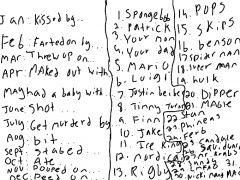 Jan: kissed by...
Feb: Farted on by...
Mar: Threw up on...
Apr: Maked out with
May had a baby with...
June shot...
July: Get murderd by
Aug: bit...
Sept: stabed...
Oct: ate
Nov: pooped on...
Dec: peed on
1. Spongebob
2. Patrick
3. Your mom
4. Your dad
5. Mario
6. Luigi
7. Justin beiber
8. Timmy Turner
9. Finn
10. Jake
11. Ice King
12. mordicai
13. Rigby
14. POPS
15. Skips
16. benson
17. spiderman
18. superman
19. hulk
20. Dipper
21. Mable
22. Stan
23. Phineas
24. Ferb
25. Candace
26. Squidward